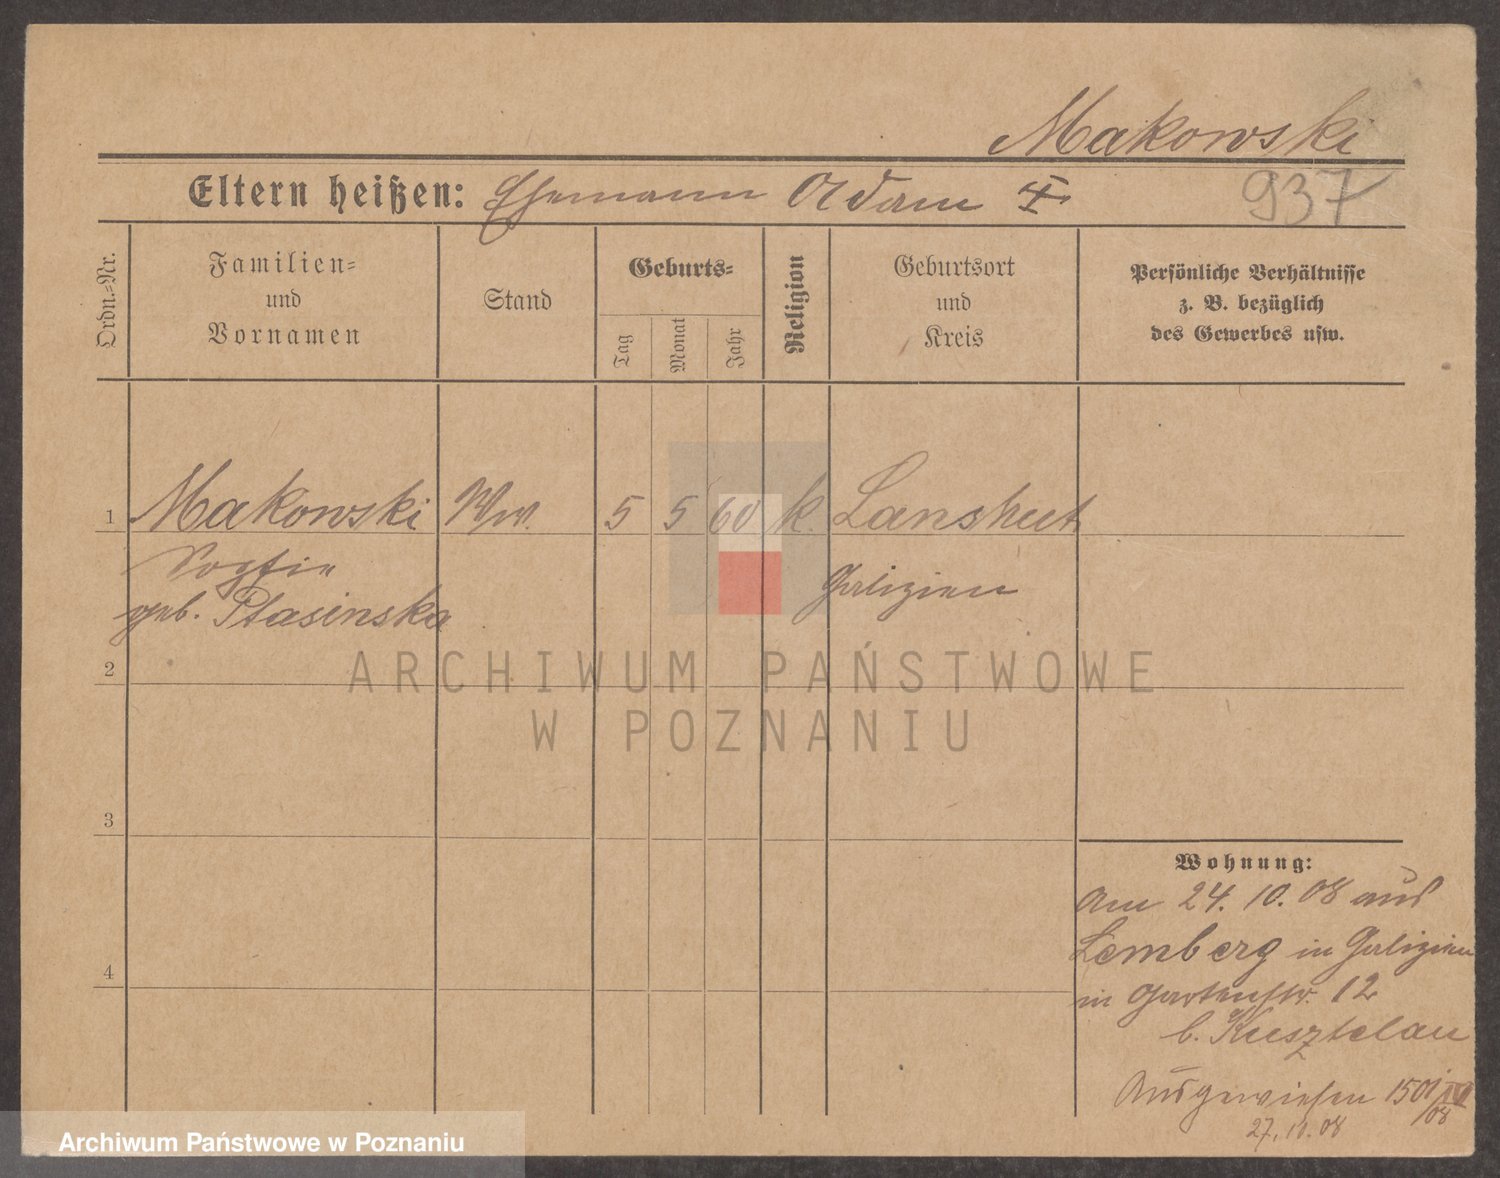 Makowski
Eltern heißen: Ehemann Adam
937
Ordn.-Nr.
Familien-
und
Vornamen
Stand
Geburts-
Tag
Monat
Jahr
Religion
Geburtsort
und
Kreis
Persönliche Verhältnisse
z. B. bezüglich
des Gewerbes usw.
1 Makowski Ww. 5 5 60 k. Lanshut
Sophie Galizien
geb. Ptasinska
2
ARCHIWUM PAŃSTWOWE
W POZNANIU
3
4
Wohnung:
Am 24. 10. 08 aus
Lemberg in Galizien
in Gartenstr. 12
b. Kusztelau
Ausgewiesen 1501/IV/08
27. 10. 08
Archiwum Państwowe w Poznaniu